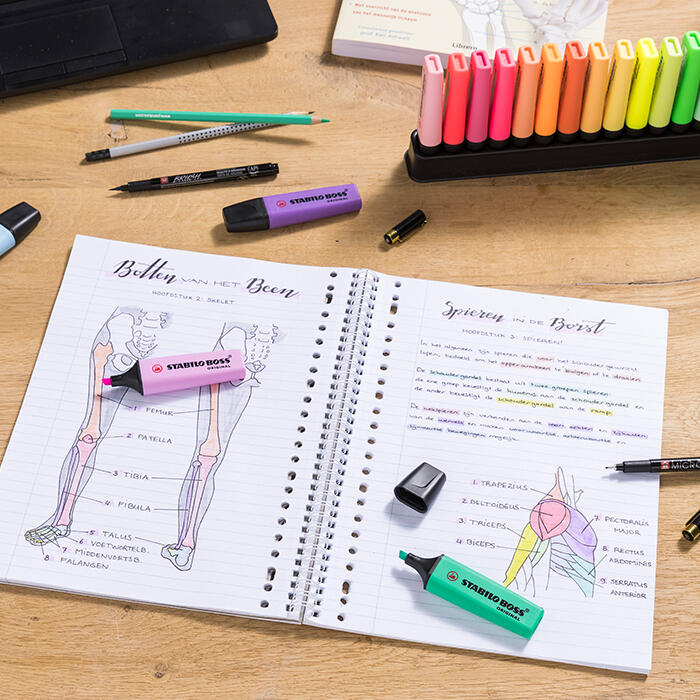 • Met overzicht van de anatomie
van het menselijk lichaam
prof. Ken Ashwell
Librero
BRUSH
STABILO BOSS
ORIGINAL
Botten van het Been
Hoofdstuk 2: Skelet
STABILO BOSS
ORIGINAL
1 Femur
2 Patella
3 Tibia
4 Fibula
5 Talus
6 Voetwortelb.
7 Middenvoetsb.
8 Falangen
Spieren in de Borst
Hoofdstuk 3: Spieren!
In het algemeen zijn spieren die voor het schoudergewricht
lopen, bedoeld om het opperarmbeen te buigen of te draaien
De schoudergordel bestaat uit twee groepen spieren:
de ene groep bevestigt de humerus aan de schoudergordel en
de ander bevestigt de schoudergordel aan de romp.
De nekspieren zijn verbonden aan de voor, achter en zijkanten
van de wervels en maken voorwaartse, achterwaartse en
zijwaartse bewegingen mogelijk.
MICRO
1. Trapezius
2. Deltoideus
3. Triceps
4. Biceps
7. Pectoralis
Major
8. Rectus
Abdominis
9. Serratus
Anterior
STABILO BOSS
ORIGINAL